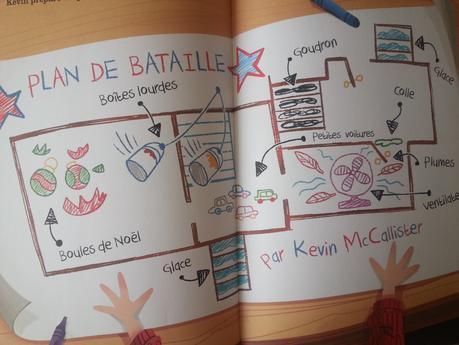 PLAN DE BATAILLE
Boîtes lourdes
Goudron
Glace
Colle
Petites voitures
Plumes
Boules de Noël
Glace
Par Kevin McCallister